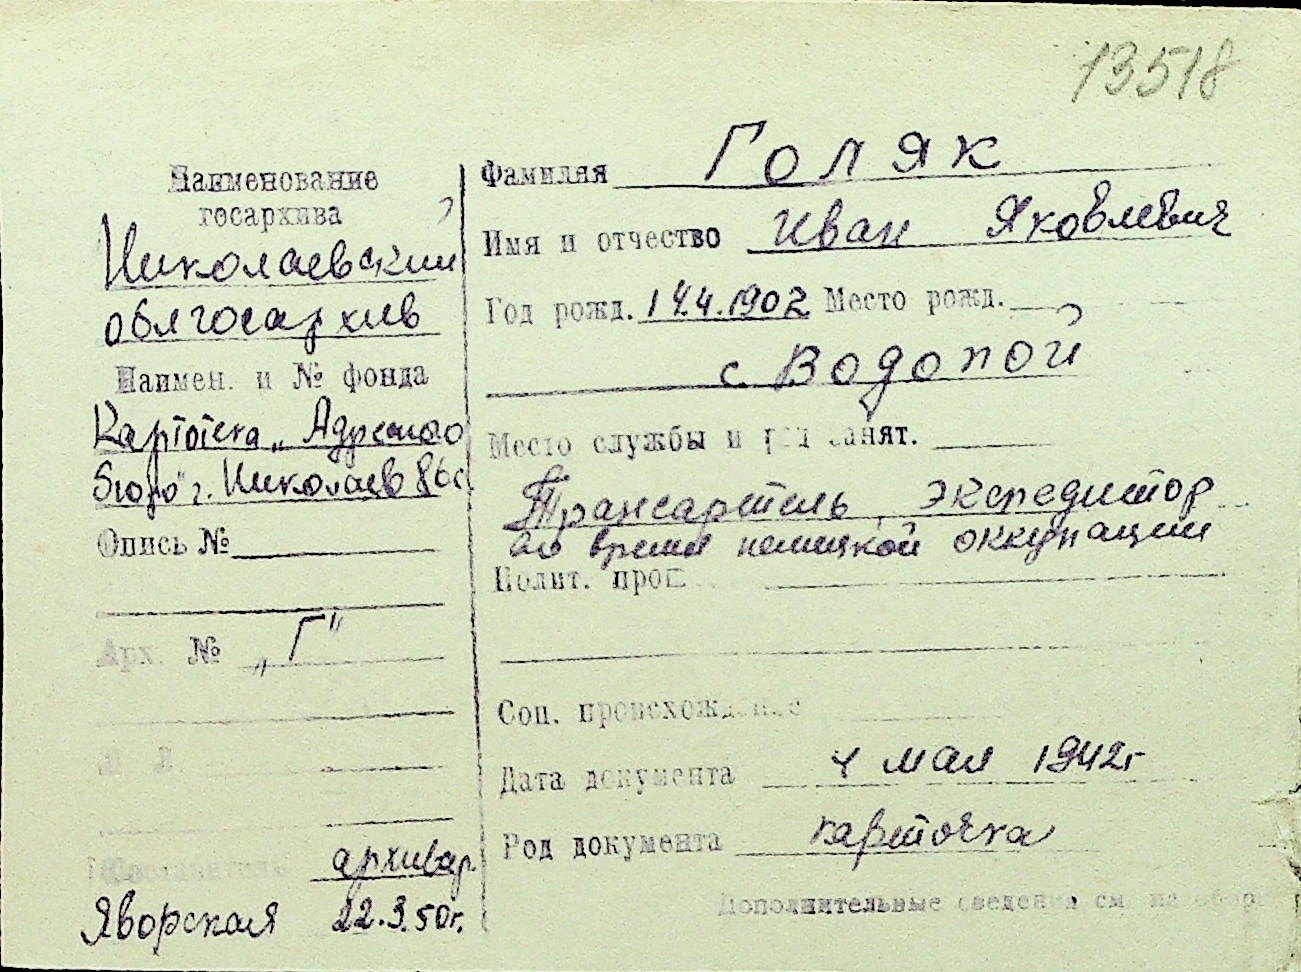 13518
Наименование
госархива
Николаевский
облгосархив
Наимен. и № фонда
Картотека „Адресного
бюро" г. Николаев
Опись №
Арх. № „Г"
Л.
Составитель архивар.
Яворская 22.3.50г.
Фамилия Голяк
Имя и отчество Иван Яковлевич
Год рожд. 4.1902 Место рожд.
с. Водопой
Место службы и род занят.
Трансартель, экспедитор
во время немецкой оккупации
Полит. прош
Соц. происхождение
Дата документа мая 1942г
Род документа карточка
Дополнительные сведения см. на обор.